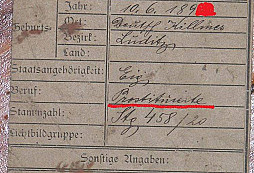 Jahr: 10. 6. 189
Geburts- Ort: Deutsch Killmes
Bezirk: Luditz
Land:
Staatsangehörigkeit: Eig
Beruf: Prostituierte
Stammzahl: Stg 458/20
Lichtbildgruppe:
Sonstige Angaben: